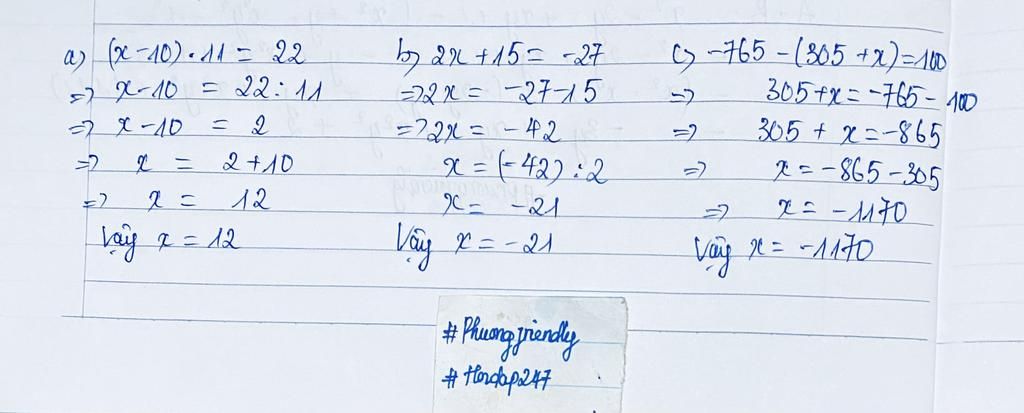 a) (x-10).11 = 22
=> x-10 = 22:11
=> x-10 = 2
=> x = 2+10
=> x = 12
Vậy x = 12
b) 2x+15 = -27
=> 2x = -27-15
=> 2x = -42
x = (-42):2
x = -21
Vậy x = -21
c) -765-(305+x)=100
=> 305+x = -765-100
=> 305+x = -865
=> x = -865-305
=> x = -1170
Vậy x = -1170
#Phuongfriendly
#Hoidap247